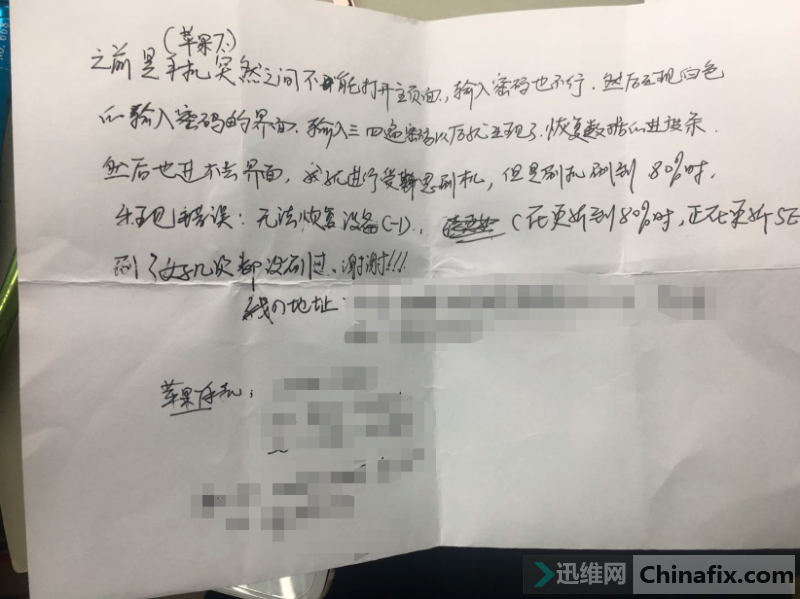 (苹果7.)
之前是手机突然之间不能打开主页面, 输入密码也不行. 然后出现白色
的输入密码的界面. 输入三四遍密码以后就出现了. 恢复数据的进度条.
然后也进不去界面, 我就进行爱思刷机, 但是刷机刷到 80%时.
出现错误: 无法恢复设备(-1), (在更新到80%时, 正在更新SE
刷了好几次都没刷过、谢谢!!!
我的地址:
苹果手机:
迅维网 Chinafix.com